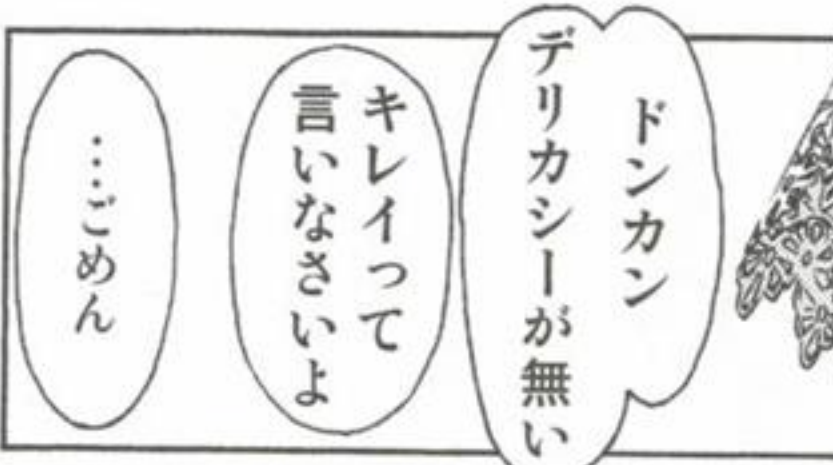 ドンカン
デリカシーが無い
キレイって
言いなさいよ
…ごめん